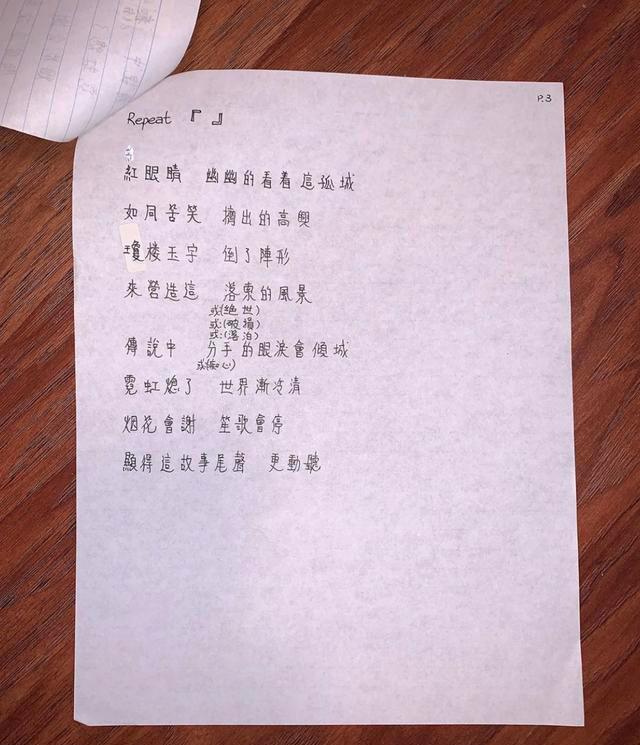 P.3
Repeat 『 』
紅眼睛 幽幽的看着這孤城
如同苦笑 擠出的高興
瓊樓玉宇 倒了陣形
來營造這 落索的風景
或(絕世)
或:(破損)
或:(落泊)
傳說中 分手的眼淚會傾城
或(痴心)
霓虹熄了 世界漸冷清
烟花會謝 笙歌會停
顯得這故事尾聲 更動聽